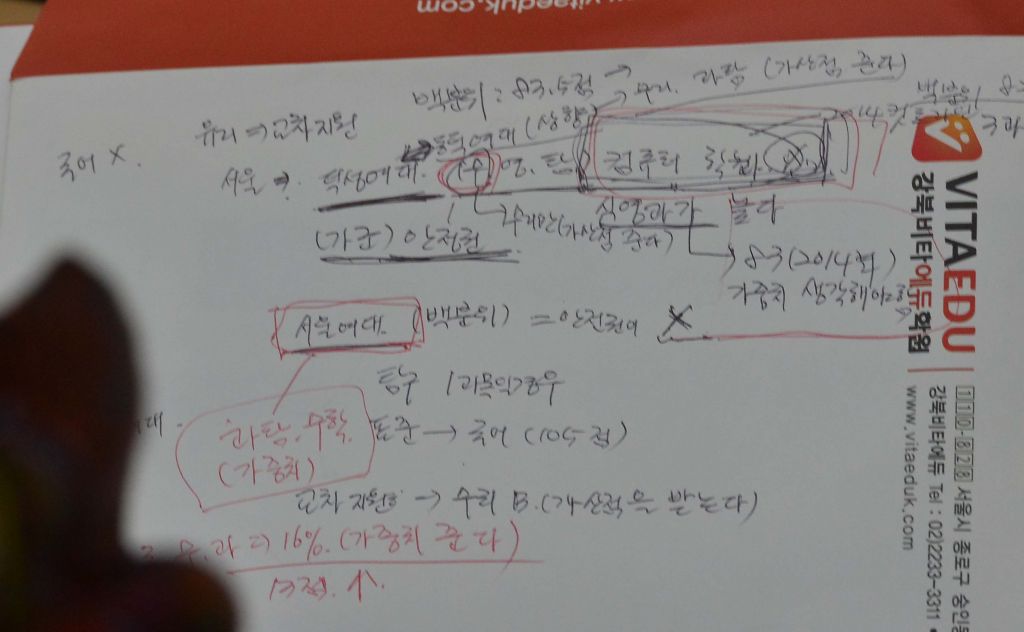 www.vitaeduk.com
백분위 : 83.5점 → 수리. 과탐 (가산점 준다)
유리 ⇒ 교차지원
국어 X.
동덕여대 (상향)
서울 → 덕성여대. (수) 영. 탐 컴퓨터 학부
(가군) 안정권
수리만 (가산점 준다)
83 (2014학)
가중치 생각해야
서울여대. (백분위) = 안전권 X
탐구 1과목일경우
과탐. 수학. 표준 → 국어 (105점)
(가중치)
교차지원 → 수리 B. (가산점을 받는다)
16%. (가중치 준다)
13점. ↑.
VITAEDU
강북비타에듀학원
110-828 서울시 종로구
강북비타에듀 Tel : 02)2233-3311
www.vitaeduk.com